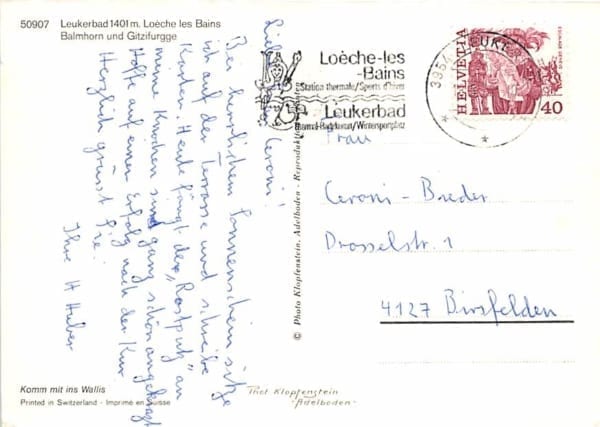 50907 Leukerbad 1401 m. Loèche les Bains
Balmhorn und Gitzifurgge
Liebe Frau Ceroni!
Bei herrlichem Sonnenschein sitze
ich auf der Terrasse und schreibe
Karten. Heute fängt der „Rostputz" an
meine Knochen sind ganz schön angekratzt
Hoffe auf einen Erfolg nach der Kur
Herzlich grüsst Sie
Ihre H Huber
Komm mit ins Wallis
Printed in Switzerland - Imprimé en Suisse
© Photo Klopfenstein, Adelboden - Reproduktion
Phot Klopfenstein
-Adelboden-
Loèche-les
-Bains
Station thermale/Sports d'hiver
Leukerbad
Thermal-Badekurort/Wintersportplatz
3954 LEUKE
HELVETIA
40
Frau
Ceroni-Breder
Drosselstr. 1
4127 Birsfelden